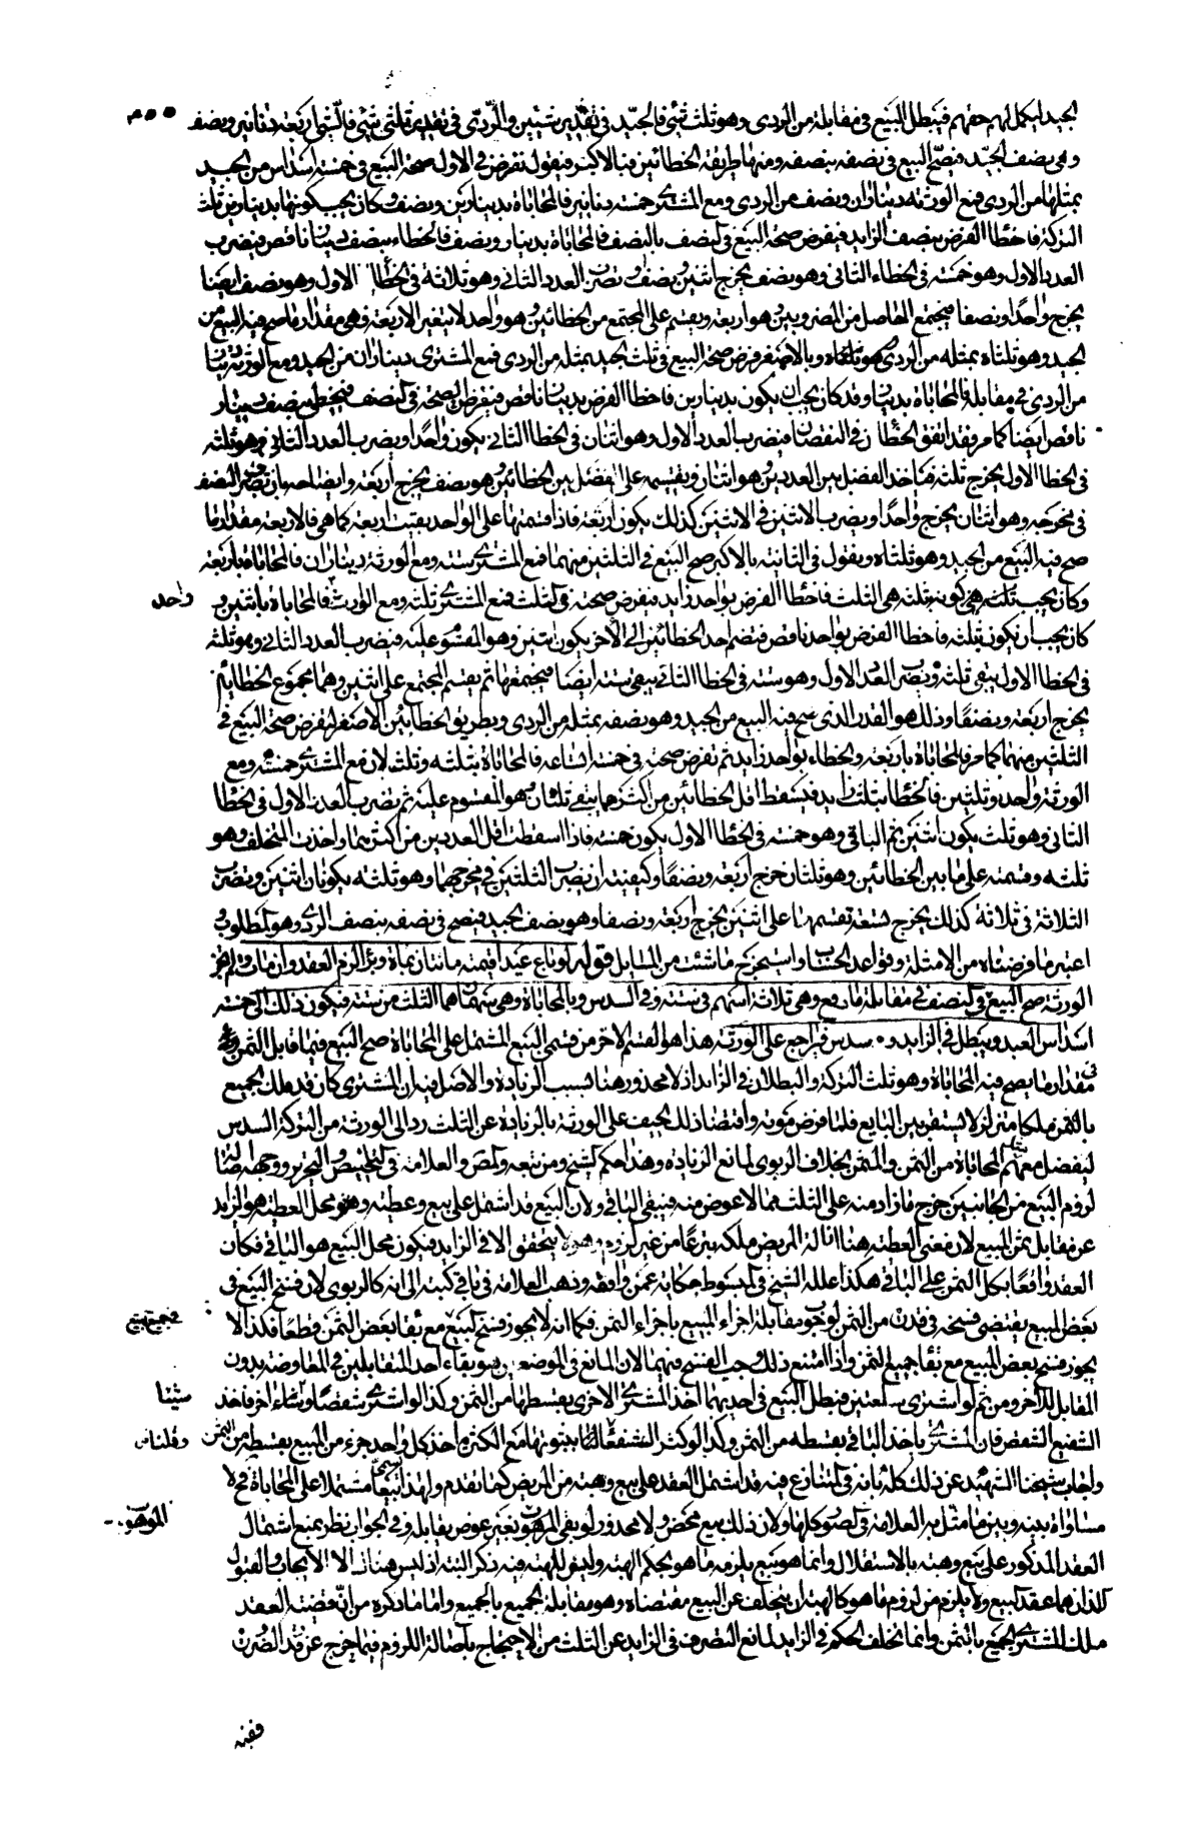 الجيد ليكمل لهم حقهم فيبطل البيع في مقابلة من الردى وهو ثلث شئ فالجيد في تقدير شيئين والردى في تقدير ثلثى شئ فالشئ اربعة دنانير ونصف
وهى نصف الجيد فيصح البيع في نصفه بنصفه ومنها طريقة الخطائين فبالاكبر فنقول نفرض في الاول صحة البيع في خمسة اسداس من الجيد
بمثلها من الردى فمع الورثة ديناران ونصف من الردى ومع المشترى خمسة دنانير فالمحاباة بدينارين ونصف وكان يجب كونها بدينارين ثلث
التركة فاخطأ الفرض بنصف الزايد فيفرض صحة البيع في النصف بالنصف فالمحاباة بدينار ونصف فالخطاء بنصف دينار ناقص فيضرب
العدد الاول وهو خمسة في الخطاء الثانى وهو نصف يخرج اثنين ونصف ويضرب العدد الثانى وهو ثلاثة في الخطأ الاول وهو نصف ايضا
يخرج واحدا ونصفا فيجتمع الحاصل من المضروبين وهو اربعة ويقسم على المجتمع من الخطائين وهو واحد لا يتغير الاربعة وهى مقدار ما صح فيه البيع من
الجيد وهو ثلثاه بمثله من الردى وهو ثلثاه وبالاصغر فرض صحة البيع في ثلث الجيد بمثله من الردى فمع المشترى ديناران من الجيد ومع الورثة دينار
من الردى في مقابلة فالمحاباة بدينار وقد كان يجب ان يكون بدينارين فاخطا الفرض بدينار ناقص فيفرض الصحة في النصف فيخطى بنصف دينار
ناقص ايضا كما مر فقد اتفق الخطأان في النقصان فيضرب العدد الاول وهو اثنان في الخطا الثانى يكون واحدا ويضرب العدد الثانى وهو ثلثه
في الخطا الاول يخرج ثلثه فتاخذ الفضل بين العددين وهو اثنان ويقسمه على الفضل بين الخطائين وهو نصف يخرج اربعة وايضاحه بان يضرب النصف
في مخرجه وهو اثنان يخرج واحدا ويضرب الاثنين في الاثنين كذلك يكون اربعة فاذا قسمتها على الواحد بقيت اربعة كما هى فالاربعة مقدار ما
صح فيه البيع من الجيد وهو ثلثاه ونقول في الثانية بالاكبر صح البيع في الثلثين منهما فمع المشترى ستة ومع الورثة ديناران فالمحاباة باربعة
وكان يجب كونه ثلثه هى الثلث فاخطأ الفرض بواحد زايد فيفرض صحته في الثلث فمع المشترى ثلثه ومع الوارث فالمحاباة باثنين و واحد
كان يجب ان يكون بثلثه فاخطا الفرض بواحد ناقص فتضم احد الخطائين الى الاخر يكون اثنين وهو المقسوم عليه فيضرب العدد الثانى وهو ثلثه
في الخطا الاول يبقى ثلثه ويضرب العدد الاول وهو ستة في الخطا الثانى يبقى ستة ايضا فيجتمعها ثم يقسم المجتمع على اثنين وهما مجموع الخطائين
يخرج اربعة ونصفا وذلك هو القدر الذى صح فيه البيع من الجيد وهو نصفه بمثله من الردى وبطريق الخطائين الاصغر نفرض صحة البيع في
الثلثين منهما كما مر فالمحاباة باربعة والخطاء بواحد زايد ثم نفرض صحته في خمسة اتساعه فالمحاباة بثلثه وثلث لان مع المشترى خمسة ومع
الورثة واحد وثلثين فالخطأ بثلث زايد فيسقط اقل الخطائين من اكثرهما يبقى ثلثان فهو المقسوم عليه ثم يضرب العدد الاول في الخطأ
الثانى وهو ثلث يكون اثنين ثم الباقى وهو خمسة في الخطأ الاول يكون خمسة فاذا اسقطت اقل العددين من اكثرهما واخذت المتخلف وهو
ثلثه وقسمته على ما بين الخطائين وهو ثلثان خرج اربعة ونصفا وكيفيته ان يضرب الثلثين في مخرجهما وهو ثلثه يكونان اثنين ويضرب
الثلاثة في ثلاثة كذلك يخرج تسعة تقسمها على اثنين يخرج اربعة ونصفا وهو نصف الجيد فيصح في نصفه بنصف الردى وهو المطلوب
اعتبر ما فرضناه من الامثلة وقواعد الحساب واستخرج ما شئت من المسايل قوله لو باع عبدا قيمته مائتان بماة وبرأ لزم العقد وان مات ولم يجز
الورثة صح البيع في النصف في مقابلة ما دفع وهى ثلاثة اسهم في ستة وفي السدس بالمحاباة وهى سهمان هما الثلث من ستة فيكون ذلك خمسة
اسداس العبد ويبطل في الزايد و٠ سدس فيراجع على الورثة هذا هو القسم الاخر من قسمى البيع المشتمل على المحاباة صح البيع فيما قابل الثمن وفى
مقدار ما يصح فيه المحاباة وهو ثلث التركة والبطلان في الزايد اذ لا محذور هنا بسبب الزيادة والاصل فيه ان المشترى كان قد ملك الجميع
بالثمن ملكا متزلزلا يستقر ببرء البايع فلما فرض موته واقتضا ذلك الحيف على الورثة بالزيادة عن الثلث رد الى الورثة من التركة السدس
ليفضل معهم مثلا المحاباة من الثمن والمثمن بخلاف الربوى لمانع الزيادة وهذا حكم الشيخ ومن تبعه والمص والعلامة في التلخيص والتحرير ووجهه اصالة
لزوم البيع من الجانبين خرج ما زاد منه على الثلث مما لا عوض منه فيبقى الباقى ولان البيع قد اشتمل على بيع وعطية وهو محل العطية هو الزايد
عن مقابل ثمن المبيع لان معنى العطية هنا انالة المريض ملكه تبرعا من غير لزوم وهو لا يتحقق الا في الزايد فيكون محل البيع هو الباقى فكان
العقد واقعا بكل الثمن على الباقى هكذا علله الشيخ في المبسوط حكاية عمن وافقه وذهب العلامة في باقى كتبه الى انه كالربوى لان فسخ البيع في
بعض المبيع يقتضى فسخه في قدره من الثمن لوجوب مقابلة اجزاء المبيع باجزاء الثمن فكما انه لا يجوز فسخ البيع مع بقا بعض الثمن قطعا فكذا لا في جميع المبيع
يجوز فسخ بعض المبيع مع بقا جميع الثمن واذا امتنع ذلك وجب الفسخ فيهما لان المانع في الموضعين هو بقاء احد المتقابلين في المعاوضة بدون
المقابل الاخر ومن ثم لو اشترى سلعتين فبطل البيع في احديهما اخذ المشترى الاخرى بقسطها من الثمن وكذا لو اشترى شقصا وشيئا اخر فاخذ شيئا
الشفيع الشقص فان المشترى ياخذ الباقى بقسطه من الثمن وكذا لو كثر الشفعا وقلنا بثبوتها مع الكثرة واخذ كل واحد جزء من المبيع بقسطه من الثمن وقلنا
واجاب شيخنا الشهيد عن ذلك كله بانه في المتنازع فيه قد اشتمل العقد على بيع وهبة من المريض كما تقدم ولهذا سمى بيعا مشتملا على المحاباة فح لا
مساواة بينه وبين ما مثل به العلامة في الصور كلها ولان ذلك بيع محض ولا محذور لو بقى الموهوب بغير عوض يقابله وفي الجواب نظر بمنع اشتمال الموهوب
العقد المذكور على بيع وهبة بالاستقلال وانما هو بيع يلزمه ما هو بحكم الهبة وليس للهبة فيه ذكر البتة اذ ليس هناك الا الايجاب والقبول
اللذان هما عقد البيع ولا يلزم من لزوم ما هو كالهبة ان يتخلف عن البيع مقتضاه وهو مقابلة الجميع بالجميع واما ما ذكره من ان قضية العقد
ملك المشترى الجميع بالثمن وانما تخلف الحكم في الزايد لمانع التصرف في الزايد عن الثلث من الاحتجاج باصالة اللزوم فيما خرج عن قدر الضرورة
ففيه